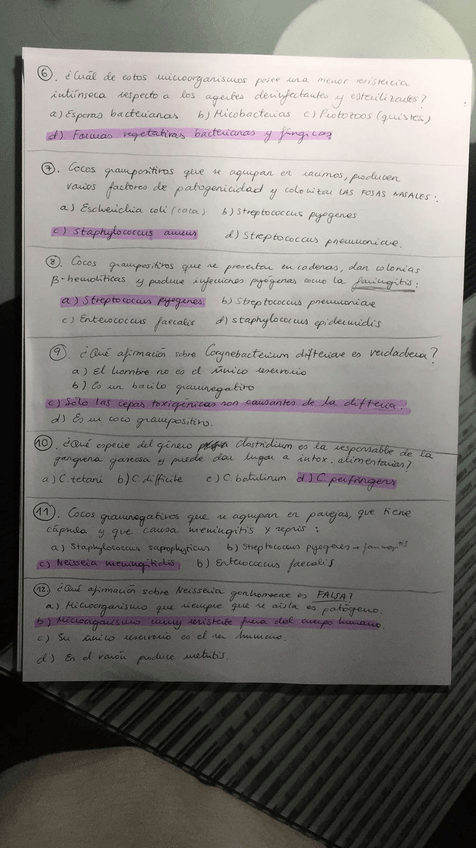 6. ¿Cuál de estos microorganismos posee una menor resistencia
intrínseca respecto a los agentes desinfectantes y esterilizantes?
a) Esporas bacterianas b) Micobacterias c) Protozoos (quistes)
d) Formas vegetativas bacterianas y fúngicas
7. Cocos grampositivos que se agrupan en racimos, producen
varios factores de patogenicidad y colonizan LAS FOSAS NASALES:
a) Escherichia coli (cacas) b) Streptococcus pyogenes
c) Staphylococcus aureus d) Streptococcus pneumoniae.
8. Cocos grampositivos que se presentan en cadenas, dan colonias
β-hemolíticas y produce infecciones piógenas como la faringitis:
a) Streptococcus pyogenes b) Streptococcus pneumoniae
c) Enterococcus faecalis d) staphylococcus epidermidis
9. ¿Qué afirmación sobre Corynebacterium difteriae es verdadera?
a) El hombre no es el único reservorio
b) Es un bacilo gramnegativo
c) Sólo las cepas toxigénicas son causantes de la difteria.
d) Es un coco grampositivo.
10. ¿Qué especie del género Clostridium es la responsable de la
gangrena gaseosa y puede dar lugar a intox. alimentarias?
a) C tetani b) C difficile c) C. botulinum d) C perfringens
11. Cocos gramnegativos que se agrupan en parejas, que tiene
cápsula y que causa meningitis y sepsis:
a) Staphylococcus saprophyticus b) Streptococcus pyogenes
c) Neisseria meningitidis b) Enterococcus faecalis
12. ¿Qué afirmación sobre Neisseria gonhorroeae es FALSA?
a) Microorganismo que siempre que se aísla es patógeno.
b) Microorganismo muy resistente fuera del cuerpo humano.
c) Su único reservorio es el ser humano.
d) En el varón produce uretritis.